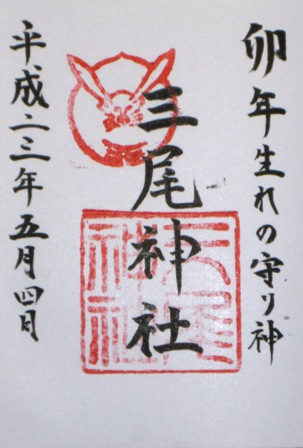 卯年生れの守り神
三尾神社
平成二三年五月四日